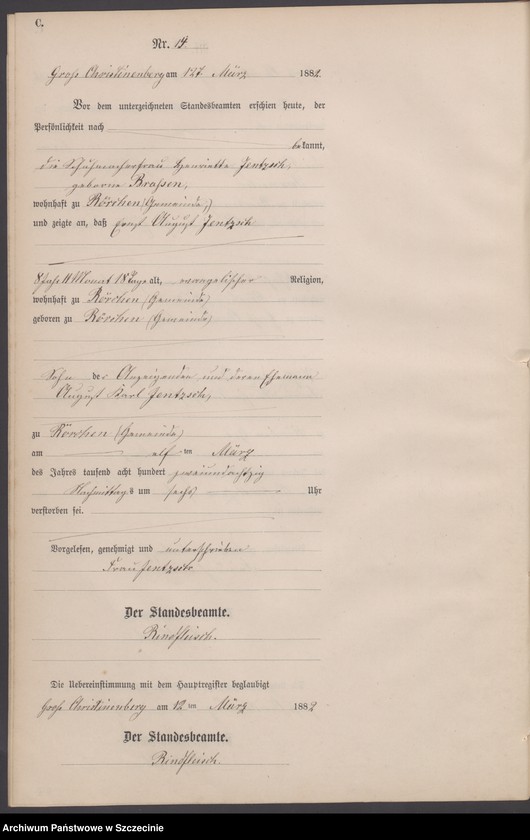 C.
Nr. 14.
Groß Christinenberg am 12ten März 1882.
Vor dem unterzeichneten Standesbeamten erschien heute, der
Persönlichkeit nach
bekannt,
die Schuhmacherfrau Henriette Jentzsch,
geborne Braßen,
wohnhaft zu Rörchen (Gemeinde,)
und zeigte an, daß Ernst August Jentzsch
8 Jahr 11 Monat 18 Tage alt, evangelischer Religion,
wohnhaft zu Rörchen (Gemeinde)
geboren zu Rörchen (Gemeinde)
Sohn der Anzeigenden und deren Ehemann
August Karl Jentzsch,
zu Rörchen (Gemeinde)
am elf ten März
des Jahres tausend acht hundert zweiundachtzig
Nachmittags um sechs Uhr
verstorben sei.
Vorgelesen, genehmigt und unterschrieben
Frau Jentzsch
Der Standesbeamte.
Rindfleisch.
Die Uebereinstimmung mit dem Hauptregister beglaubigt
Groß Christinenberg am 12 ten März 1882
Der Standesbeamte.
Rindfleisch.
Archiwum Państwowe w Szczecinie